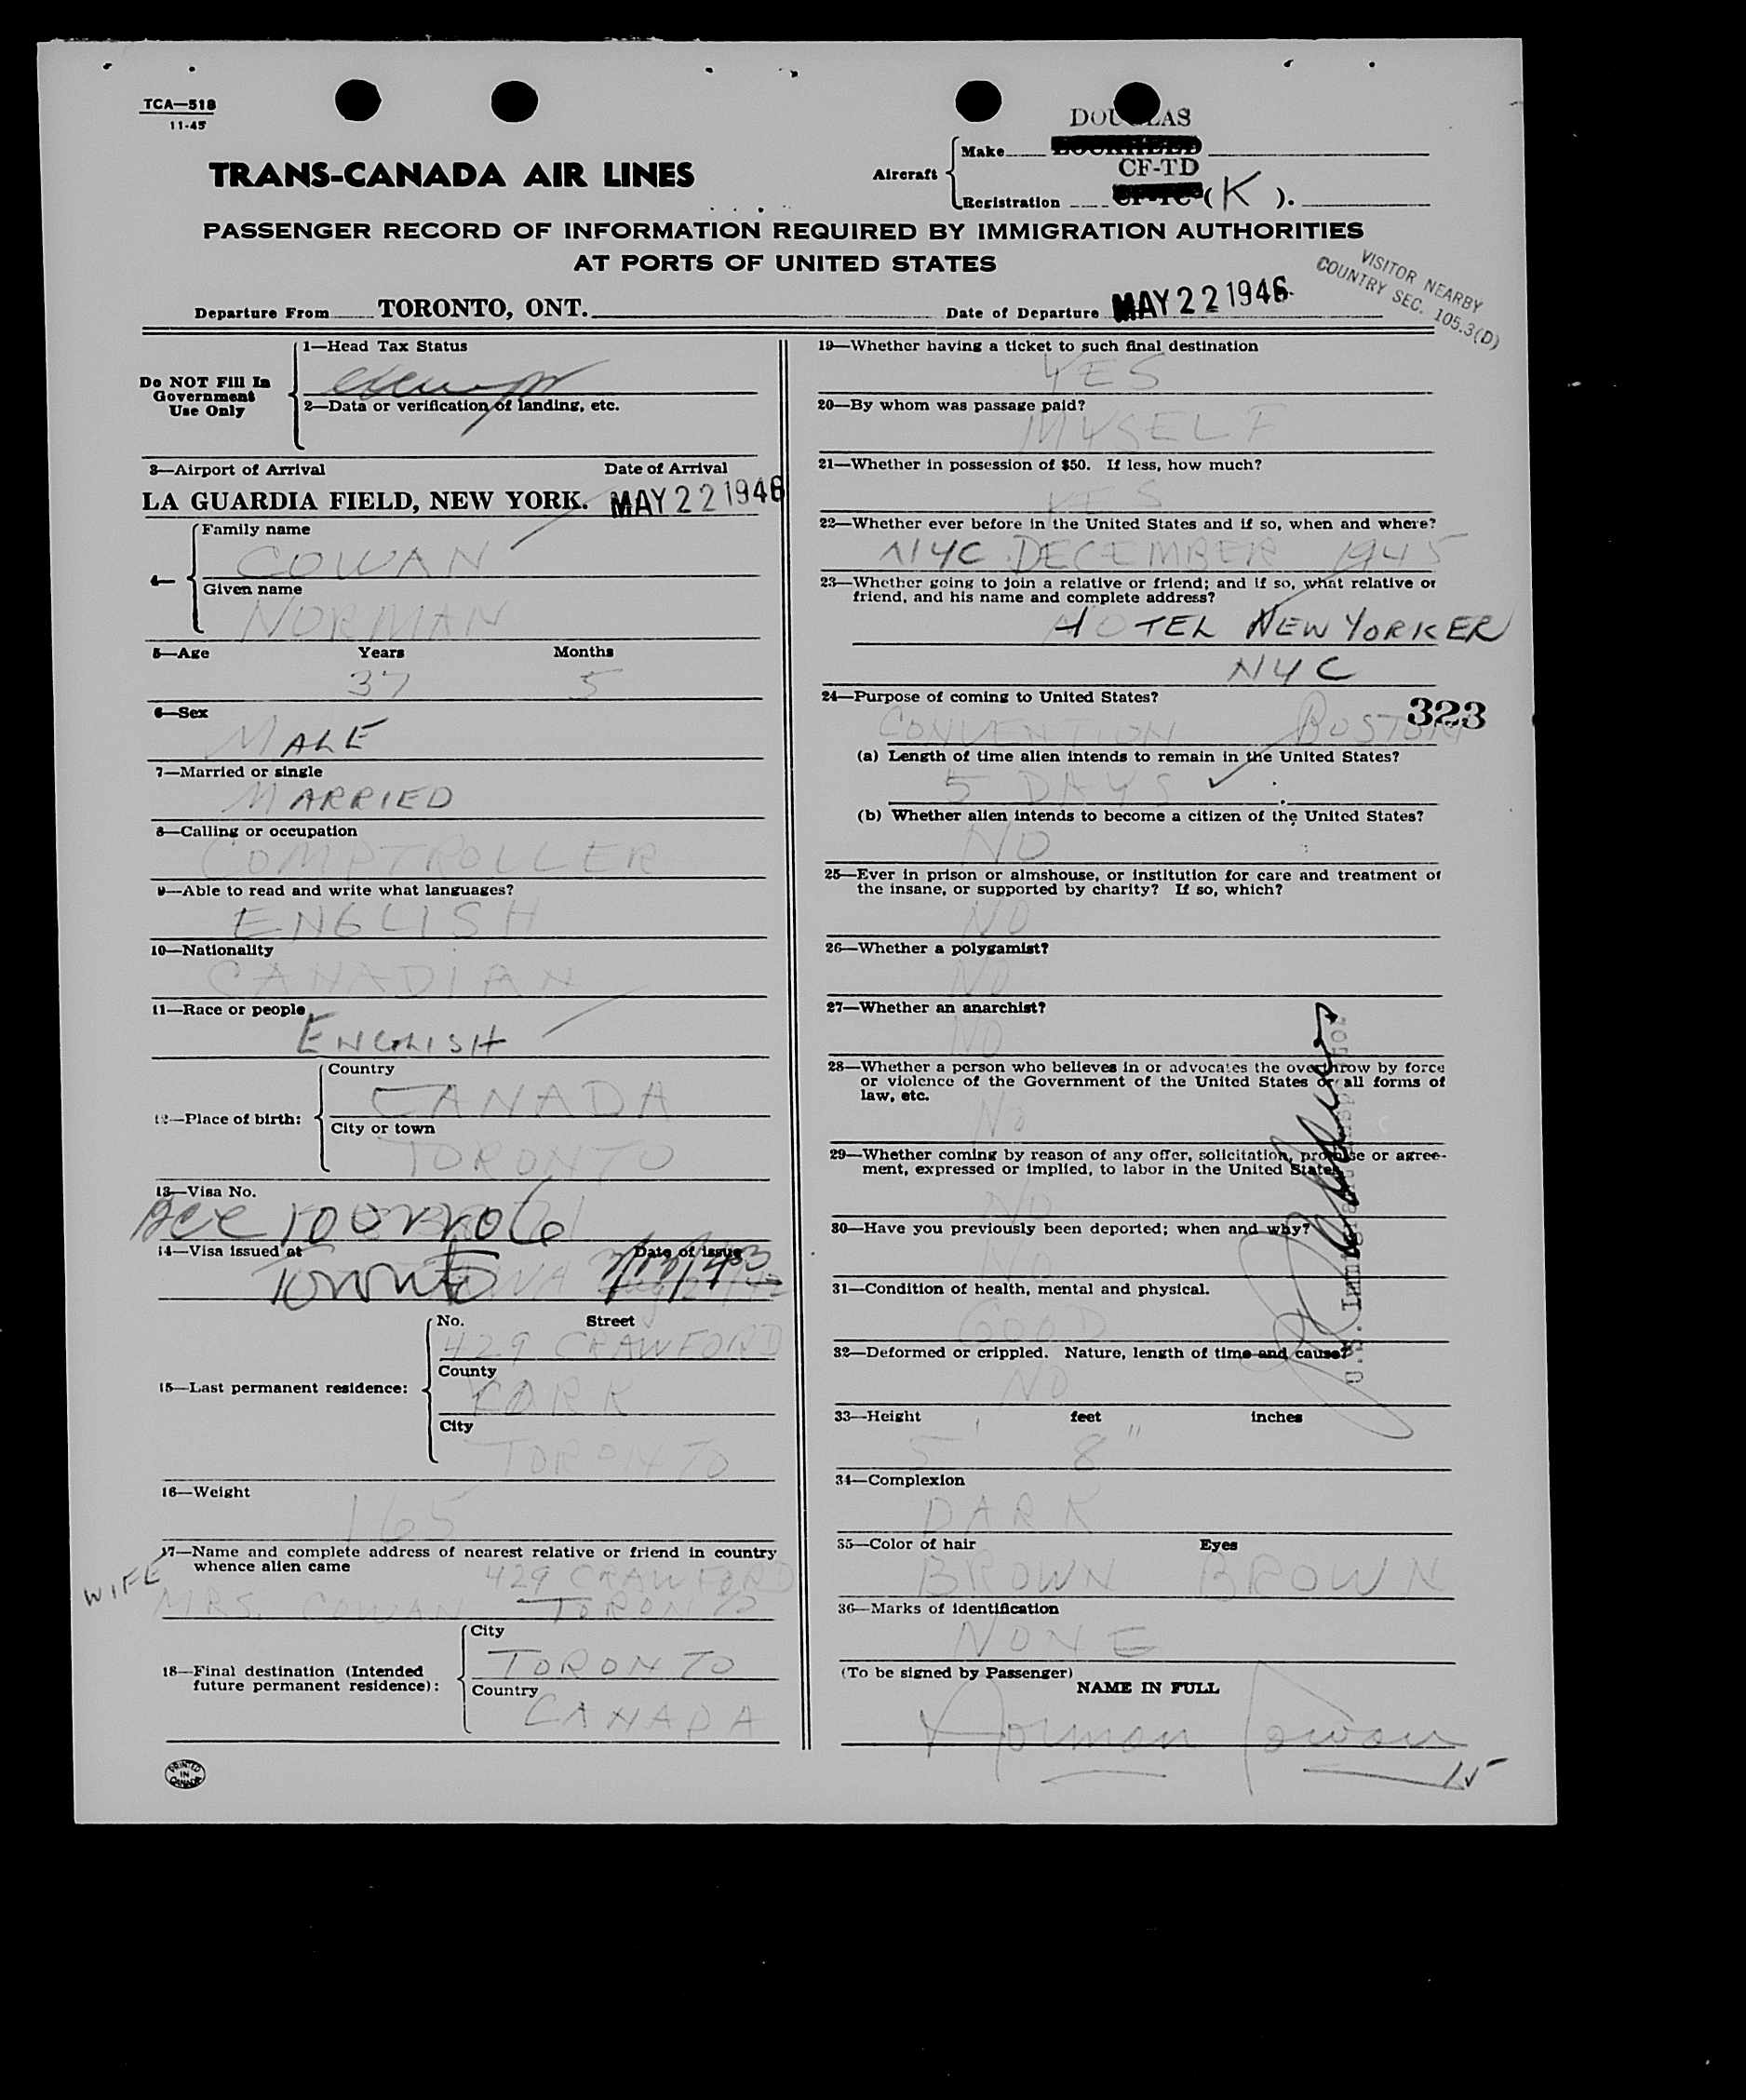 TCA—518
11-45
DOUGLAS
TRANS-CANADA AIR LINES
Aircraft
Make
CF-TD
Registration ( K ).
PASSENGER RECORD OF INFORMATION REQUIRED BY IMMIGRATION AUTHORITIES
AT PORTS OF UNITED STATES
VISITOR NEARBY
COUNTRY SEC. 105.3(D)
Departure From TORONTO, ONT. Date of Departure MAY 22 1946
Do NOT Fill In
Government
Use Only
1—Head Tax Status
exempt
2—Data or verification of landing, etc.
3—Airport of Arrival Date of Arrival
LA GUARDIA FIELD, NEW YORK. MAY 22 1946
4—
Family name
COWAN
Given name
NORMAN
5—Age Years Months
37 5
6—Sex
MALE
7—Married or single
MARRIED
8—Calling or occupation
COMPTROLLER
9—Able to read and write what languages?
ENGLISH
10—Nationality
CANADIAN
11—Race or people
ENGLISH
12—Place of birth:
Country
CANADA
City or town
TORONTO
13—Visa No.
14—Visa issued at Date of issue
Toronto
15—Last permanent residence:
No. Street
429 CRAWFORD
County
YORK
City
TORONTO
16—Weight
165
17—Name and complete address of nearest relative or friend in country
whence alien came
429 CRAWFORD
WIFE MRS. COWAN TORONTO
18—Final destination (Intended
future permanent residence):
City
TORONTO
Country
CANADA
PRINTED
IN
CANADA
19—Whether having a ticket to such final destination
YES
20—By whom was passage paid?
MYSELF
21—Whether in possession of $50. If less, how much?
YES
22—Whether ever before in the United States and if so, when and where?
NYC DECEMBER 1945
23—Whether going to join a relative or friend; and if so, what relative or
friend, and his name and complete address?
HOTEL NEW YORKER
NYC
24—Purpose of coming to United States?
323
CONVENTION BOSTON
(a) Length of time alien intends to remain in the United States?
5 DAYS
(b) Whether alien intends to become a citizen of the United States?
NO
25—Ever in prison or almshouse, or institution for care and treatment of
the insane, or supported by charity? If so, which?
NO
26—Whether a polygamist?
NO
27—Whether an anarchist?
NO
28—Whether a person who believes in or advocates the overthrow by force
or violence of the Government of the United States or all forms of
law, etc.
No
29—Whether coming by reason of any offer, solicitation, promise or agree-
ment, expressed or implied, to labor in the United States
NO
30—Have you previously been deported; when and why?
NO
31—Condition of health, mental and physical.
GOOD
32—Deformed or crippled. Nature, length of time and cause?
NO
33—Height feet inches
5' 8"
34—Complexion
DARK
35—Color of hair Eyes
BROWN BROWN
36—Marks of identification
NONE
(To be signed by Passenger)
NAME IN FULL
Norman Cowan
U.S. Immigrant Inspector